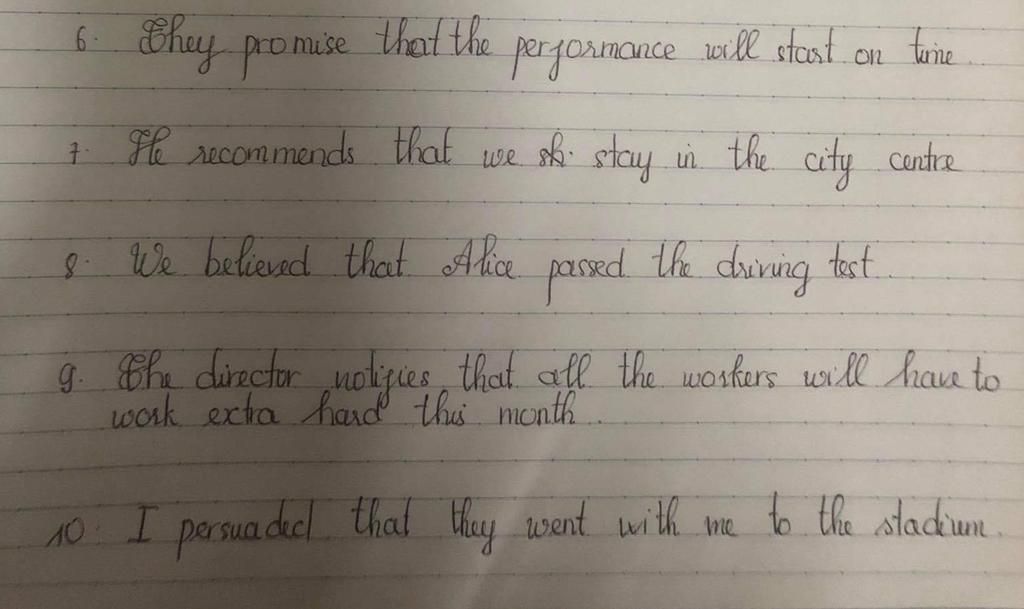 6. They promise that the performance will start on time.
7. He recommends that we sh. stay in the city centre
8. We believed that Alice passed the driving test.
9. The director notifies that all the workers will have to
work extra hard this month.
10. I persuaded that they went with me to the stadium.